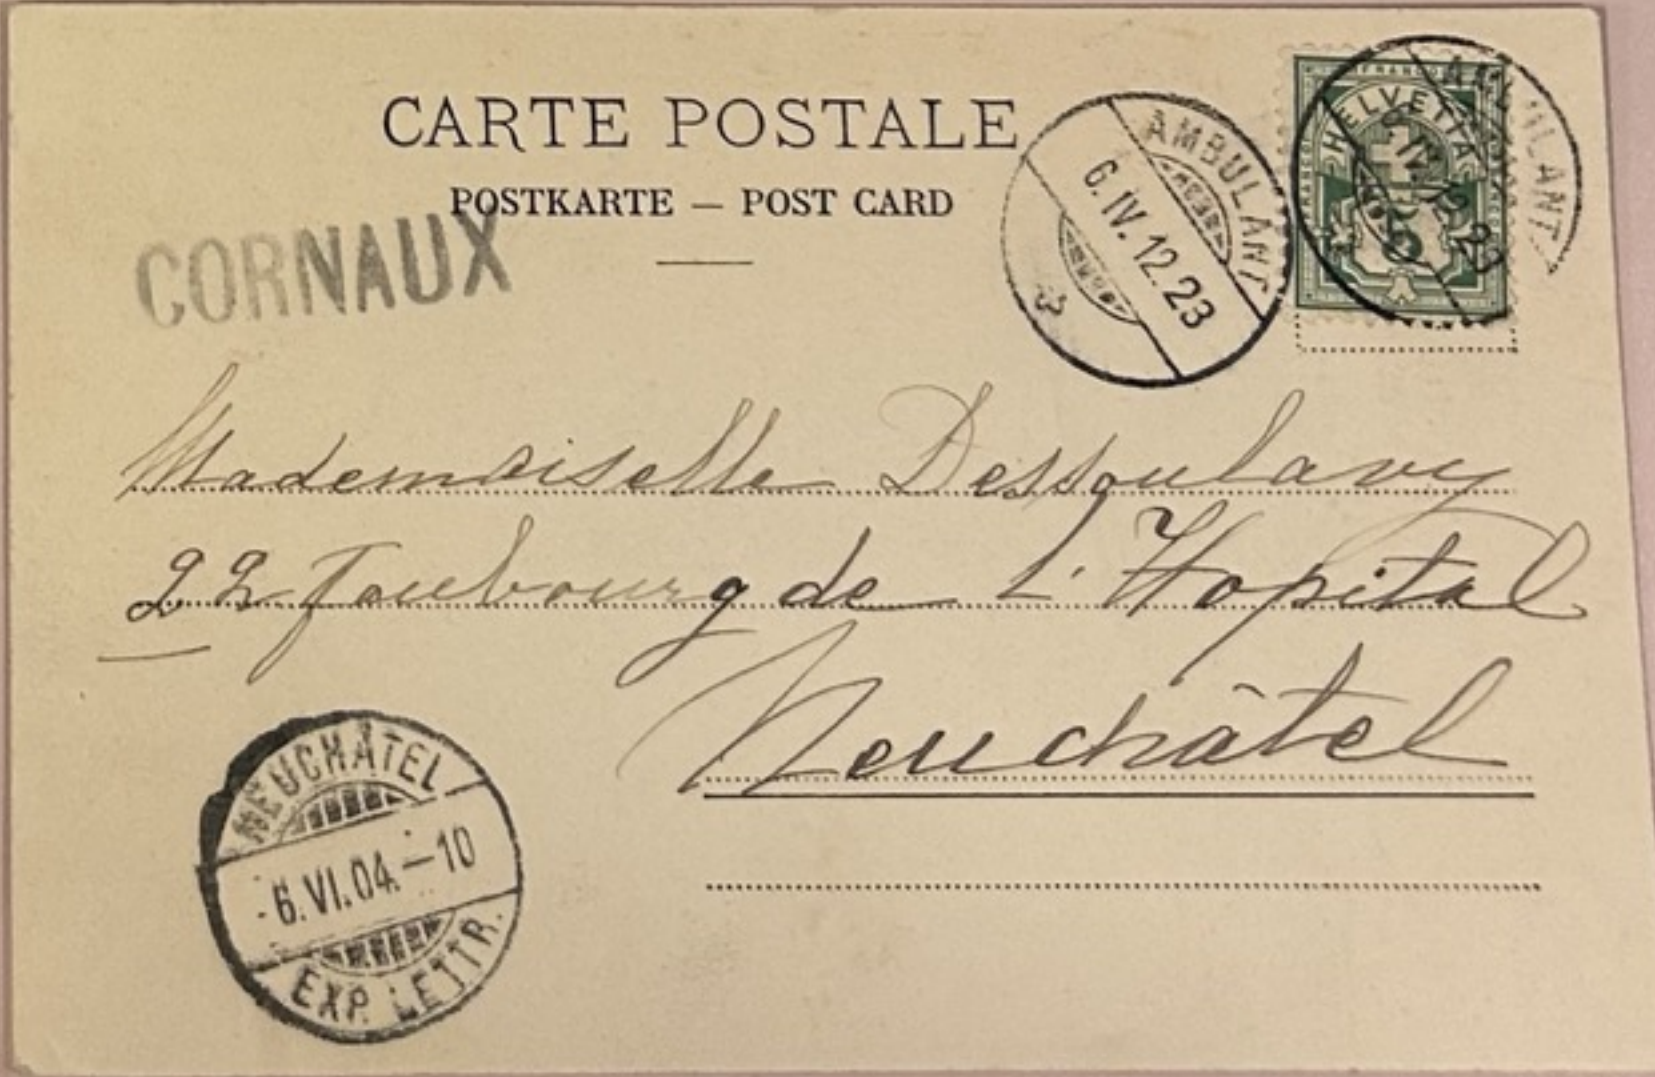 CARTE POSTALE
POSTKARTE — POST CARD
CORNAUX
AMBULANT
6. IV. 12. 23
FRANCO
HELVETIA
5
AMBULANT
Mademoiselle Dessoulavy
22 Faubourg de l'Hopital
Neuchâtel
NEUCHÂTEL
6. VI. 04. — 10
EXP. LETTR.